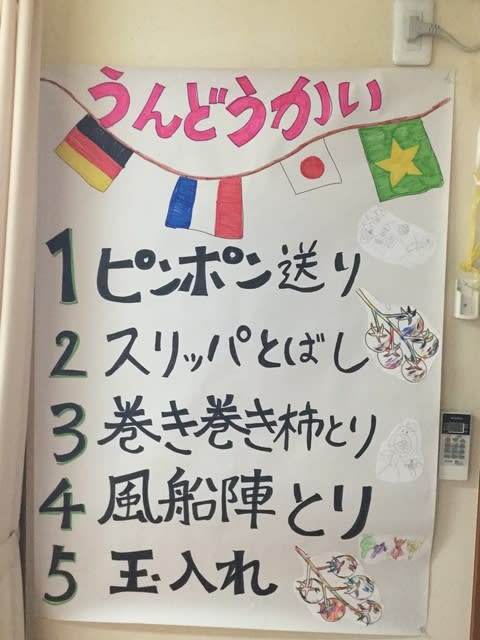 うんどうかい
1 ピンポン送り
2 スリッパとばし
3 巻き巻き柿とり
4 風船陣とり
5 玉入れ